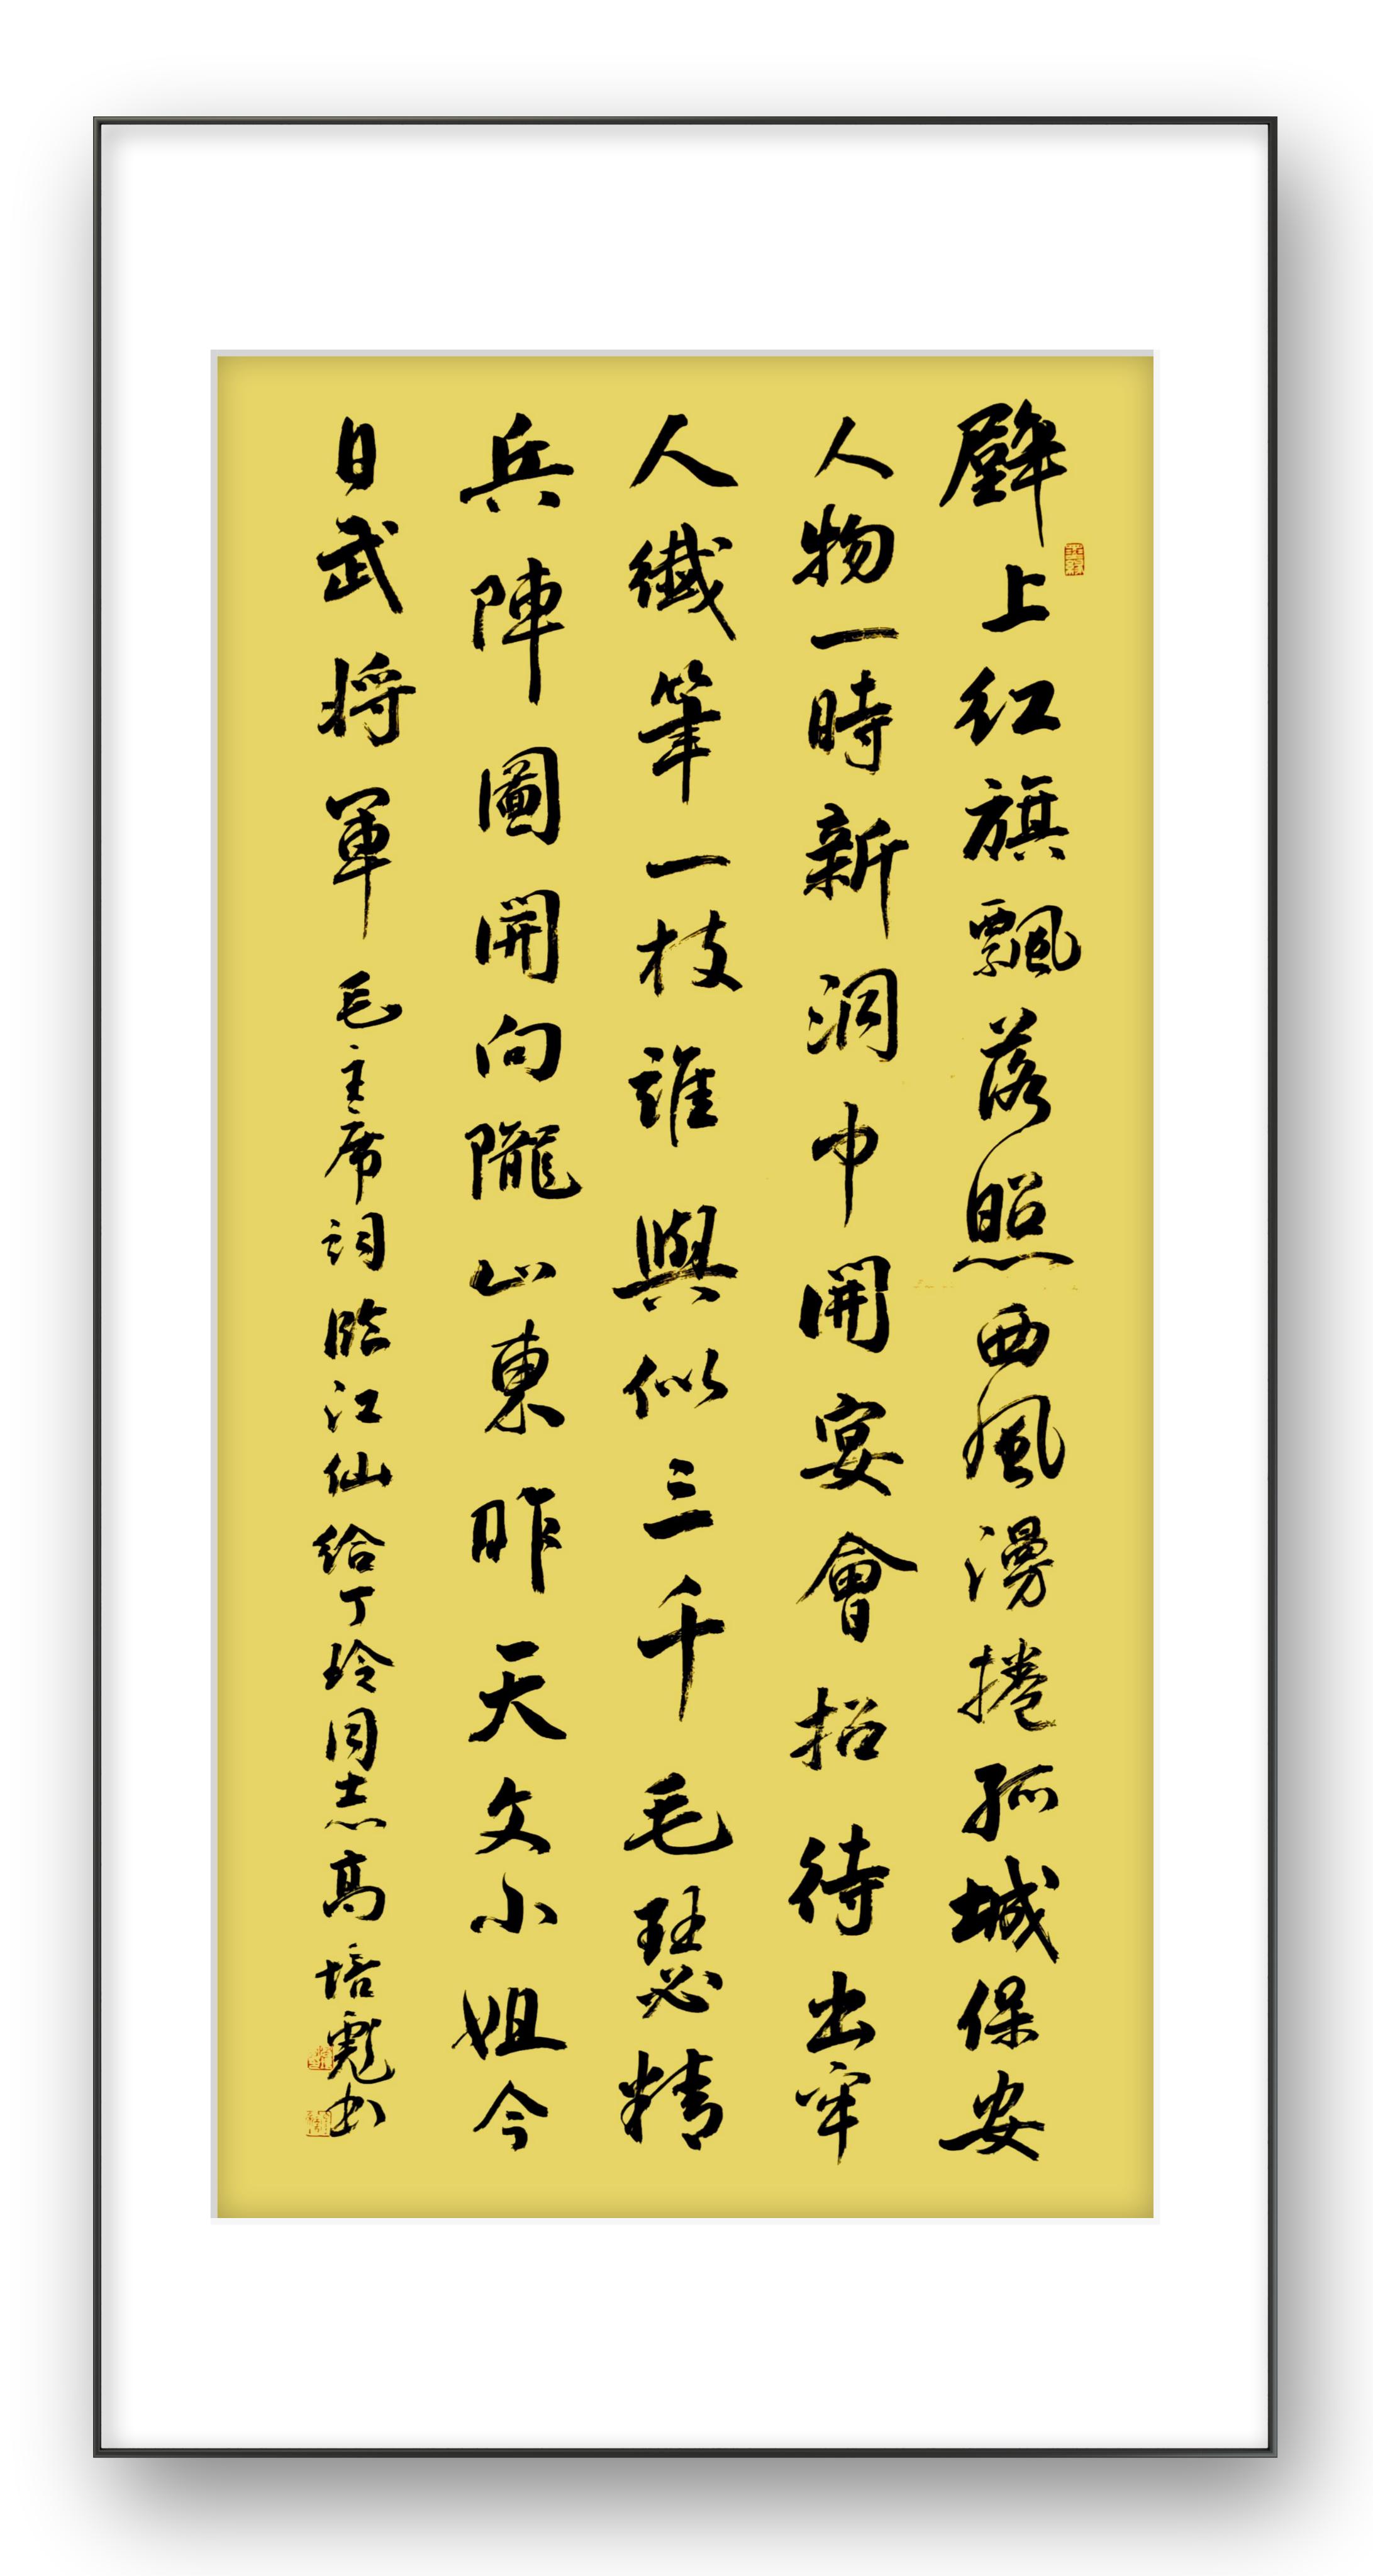 壁上红旗飄落照西風漫捲孤城保安
人物一時新洞中開宴會招待出牢
人纖筆一枝誰與似三千毛瑟精
兵陣圖開向隴山東昨天文小姐今
日武将軍毛主席词臨江仙给丁玲同志高培彪书